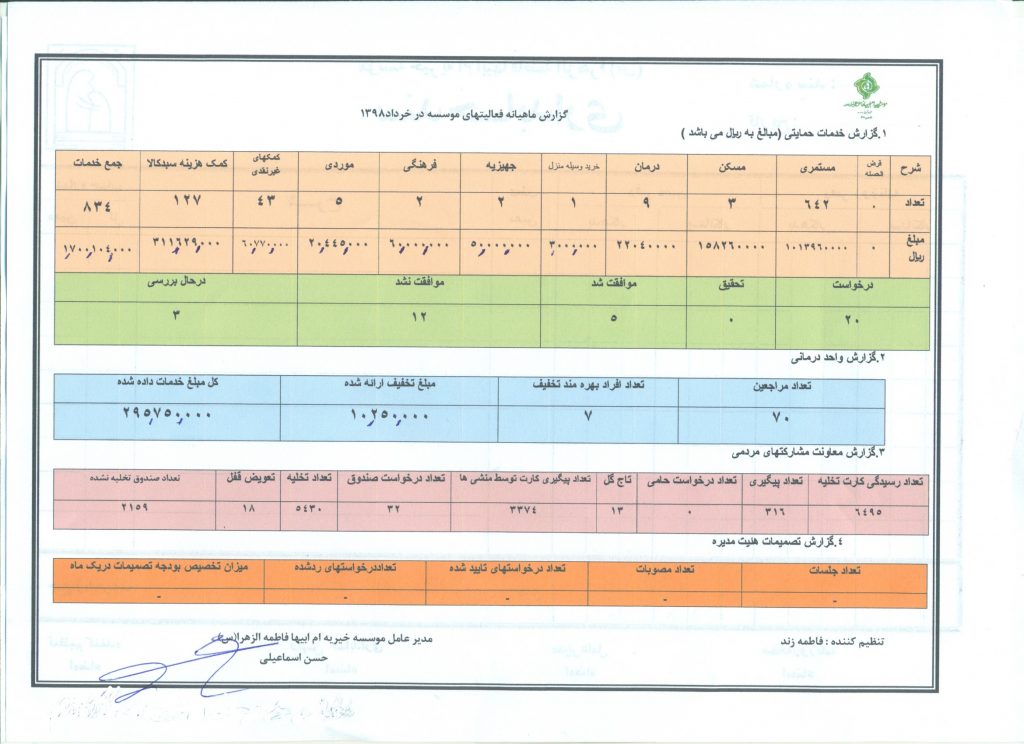 گزارش ماهیانه فعالیتهای موسسه در خرداد۱۳۹۸
۱.گزارش خدمات حمایتی (مبالغ به ریال می باشد )
شرح	قرض الحسنه	مستمری	مسکن	درمان	خرید وسیله منزل	جهیزیه	فرهنگی	موردی	کمکهای غیرنقدی	کمک هزینه سبدکالا	جمع خدمات
تعداد	۰	۶۴۲	۳	۹	۱	۲	۲	۵	۴۳	۱۲۷	۸۳۴
مبلغ ریال	۰	۱۰۱۳۹۶۰۰۰۰	۱۵۸۲۶۰۰۰۰	۲۲۰۴۰۰۰۰	۳۰۰۰۰۰۰	۵۰۰۰۰۰۰۰	۶۰۰۰۰۰۰۰	۲۰۴۴۵۰۰۰۰	۶۰۷۷۰۰۰۰	۳۱۱۶۲۹۰۰۰	۱۷۰۰۱۰۴۰۰۰
درخواست	تحقیق	موافقت شد	موافقت نشد	درحال بررسی
۲۰	۰	۵	۱۲	۳
۲.گزارش واحد درمانی
تعداد مراجعین	تعداد افراد بهره مند تخفیف	مبلغ تخفیف ارائه شده	کل مبلغ خدمات داده شده
۷۰	۷	۱۰۲۵۰۰۰۰	۲۹۵۷۵۰۰۰۰
۳.گزارش معاونت مشارکتهای مردمی
تعداد رسیدگی کارت تخلیه	تعداد پیگیری	تعداد درخواست حامی	تاج گل	تعداد پیگیری کارت توسط منشی ها	تعداد درخواست صندوق	تعداد تخلیه	تعویض قفل	تعداد صندوق تخلیه نشده
۶۴۹۵	۳۱۶	۰	۱۳	۳۳۷۴	۳۲	۵۴۳۰	۱۸	۲۱۵۹
۴.گزارش تصمیمات هئیت مدیره
تعداد جلسات	تعداد مصوبات	تعداد درخواستهای تایید شده	تعداددرخواستهای ردشده	میزان تخصیص بودجه تصمیمات دریک ماه
-	-	-	-	-
تنظیم کننده : فاطمه زند
مدیر عامل موسسه خیریه ام ابیها فاطمه الزهرا(س)
حسن اسماعیلی